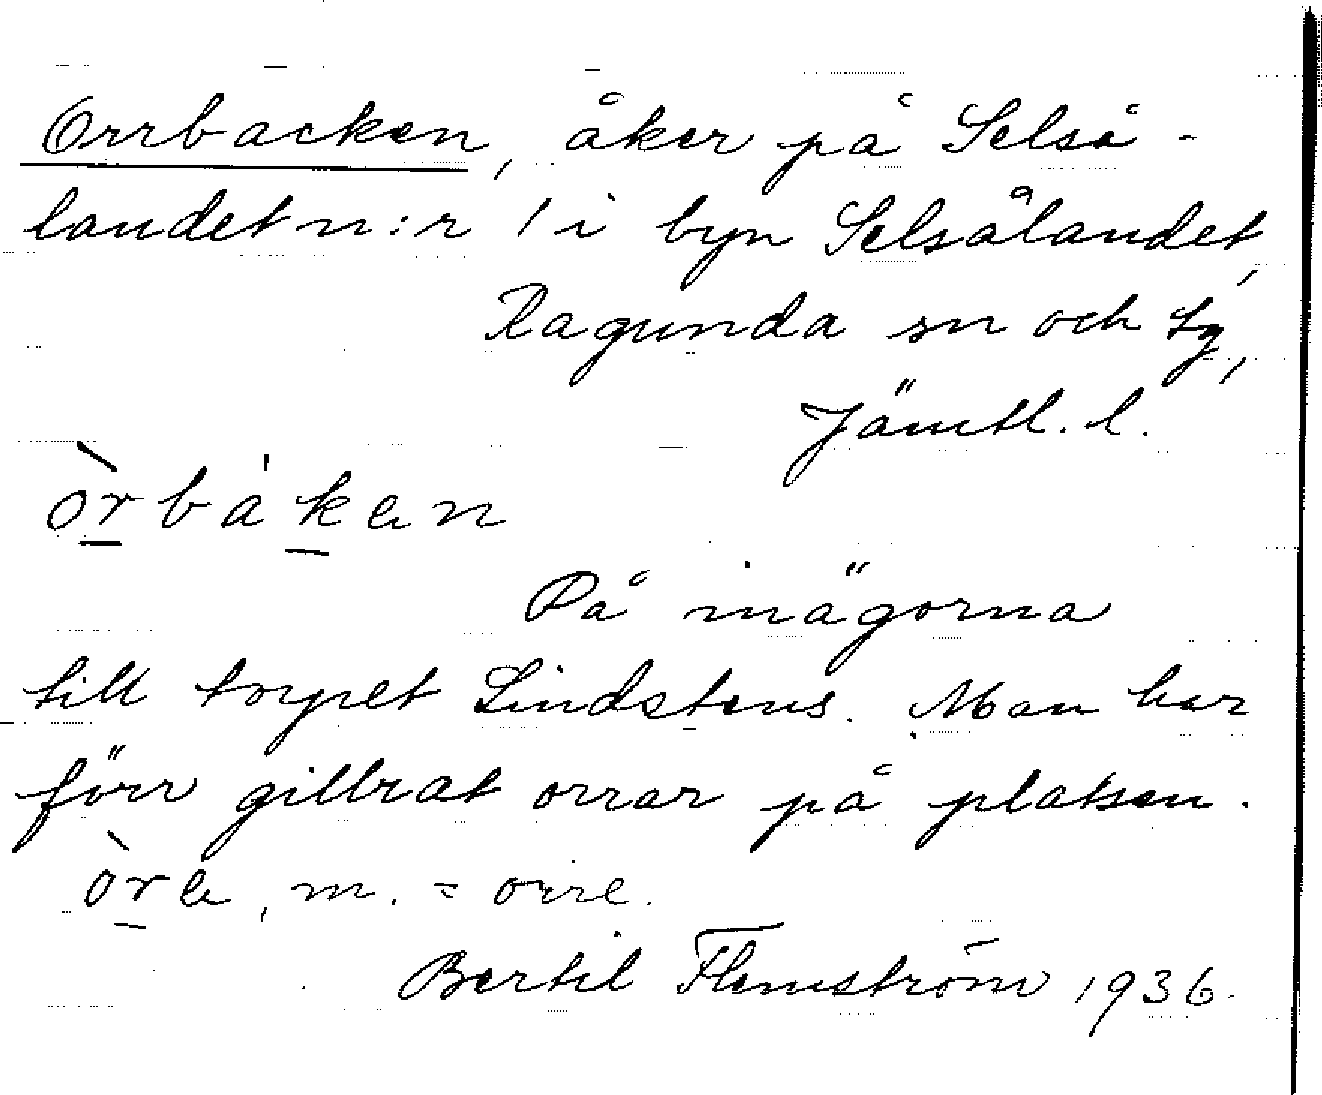 Orrbacken, åker på Selså-
landet n:r 1 i byn Selsålandet,
Ragunda sn och tg,
Jämtl. l.
òrbákan
På inägorna
till torpet Lindstens. Man har
förr gillrat orrar på platsen.
òra, m. = orre.
Bertil Flemström 1936.